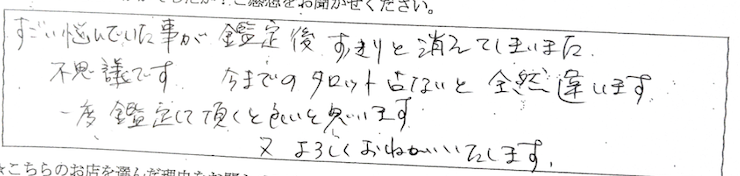 でしたか?ご感想をお聞かせください。
すごい悩んでいた事が 鑑定後 すっきりと消えてしまいました
不思議です 今までのタロット占ないと全然違います
一度鑑定して頂くと良いと思います
又よろしくおねがいいたします。
★こちらのお店を選んだ理由をお聞